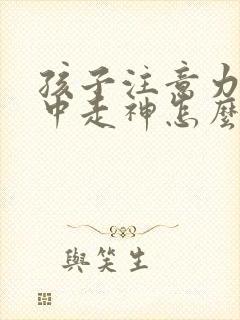 孩子注意力
中走神怎麼
與笑生